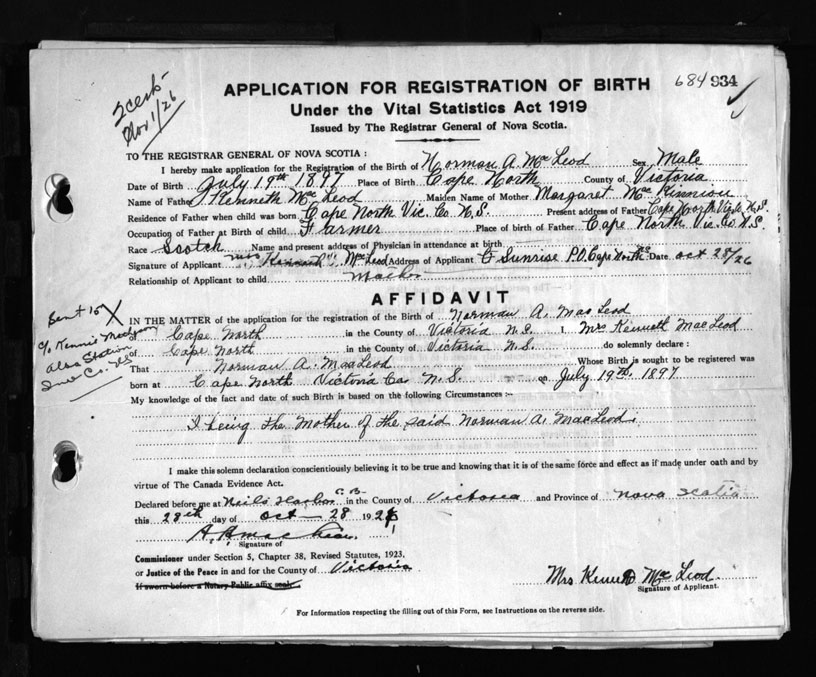 APPLICATION FOR REGISTRATION OF BIRTH 684 934
Under the Vital Statistics Act 1919
Issued by The Registrar General of Nova Scotia.
Nov 1/26
TO THE REGISTRAR GENERAL OF NOVA SCOTIA :
I hereby make application for the Registration of the Birth of Norman A. McLeod Sex Male
Date of Birth July 19th 1897 Place of Birth Cape North County of Victoria
Name of Father Kenneth McLeod Maiden Name of Mother Margaret McKinnion
Residence of Father when child was born Cape North Vic. Co. N.S. Present address of Father Cape North N.S.
Occupation of Father at Birth of child Farmer Place of birth of Father Cape North Vic. Co. N.S.
Race Scotch Name and present address of Physician in attendance at birth
Signature of Applicant Mrs Kenneth McLeod Address of Applicant Sunrise P.O. Cape North Date Oct 28/26
Relationship of Applicant to child Mother
AFFIDAVIT
Sent to X
c/o Kennie
Station
Co. NS
IN THE MATTER of the application for the registration of the Birth of Norman A. MacLeod
of Cape North in the County of Victoria N.S. I Mrs Kenneth MacLeod
of Cape North in the County of Victoria N.S. do solemnly declare :
That Norman A. MacLeod Whose Birth is sought to be registered was
born at Cape North Victoria Co. N.S. on July 19th. 1897
My knowledge of the fact and date of such Birth is based on the following Circumstances :-
I being the Mother of the said Norman A. MacLeod.
I make this solemn declaration conscientiously believing it to be true and knowing that it is of the same force and effect as if made under oath and by
virtue of The Canada Evidence Act.
Declared before me at Neils Harbor C.B. in the County of Victoria and Province of Nova Scotia
this 28th day of Oct 28 1926
Signature of
Commissioner under Section 5, Chapter 38, Revised Statutes, 1923,
or Justice of the Peace in and for the County of Victoria
If sworn before a Notary Public affix seal.
Mrs Kenneth McLeod.
Signature of Applicant.
For Information respecting the filling out of this Form, see Instructions on the reverse side.